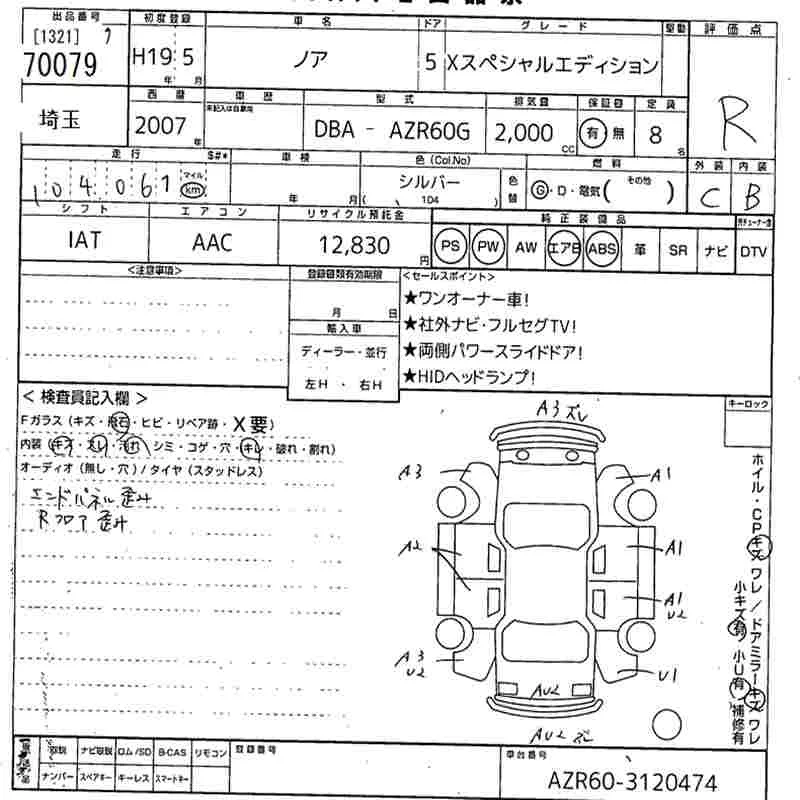 出品番号 初度登録 車名 ドア グレード 駆動 評価点
[1321]
70079 H19 5 ノア 5 Xスペシャルエディション R
年 月
埼玉 西暦 車歴 型式 排気量 保証書 定員
未記入は自家用
2007年 DBA - AZR60G 2,000cc 有 無 8名
走行 S#* 車検 色(Col.No) 燃料 外装 内装
104,061 マイル km 年 月 シルバー ( 104 ) 色替 G・D・電気( その他 ) C B
シフト エアコン リサイクル預託金 純正装備品
IAT AAC 12,830円 PS PW AW エアB ABS 革 SR ナビ DTV
<注意事項> 登録書類有効期限 <セールスポイント>
月 日
★ワンオーナー車!
★社外ナビ・フルセグTV!
★両側パワースライドドア!
★HIDヘッドランプ!
輸入車
ディーラー・並行
左H ・ 右H
<検査員記入欄> キーロック
Fガラス(キズ・飛石・ヒビ・リペア跡・X要)
内装(キズ・スレ・汚れ・シミ・コゲ・穴・キレ・破れ・割れ)
オーディオ(無し・穴)/タイヤ(スタッドレス)
エンドパネル歪み
Rフロア歪み
A3 ズレ
A3 A1
A2 A1
A1
U2
A3
U2
U1
AU2
AU2 ズレ
ホイル・CPキズワレ/ドアミラーキズワレ
小キズ有 小U有 補修有
取説 ナビ取説 ロム/SD B-CAS リモコン 登録番号 車台番号
ナンバー スペアキー キーレス スマートキー
AZR60-3120474